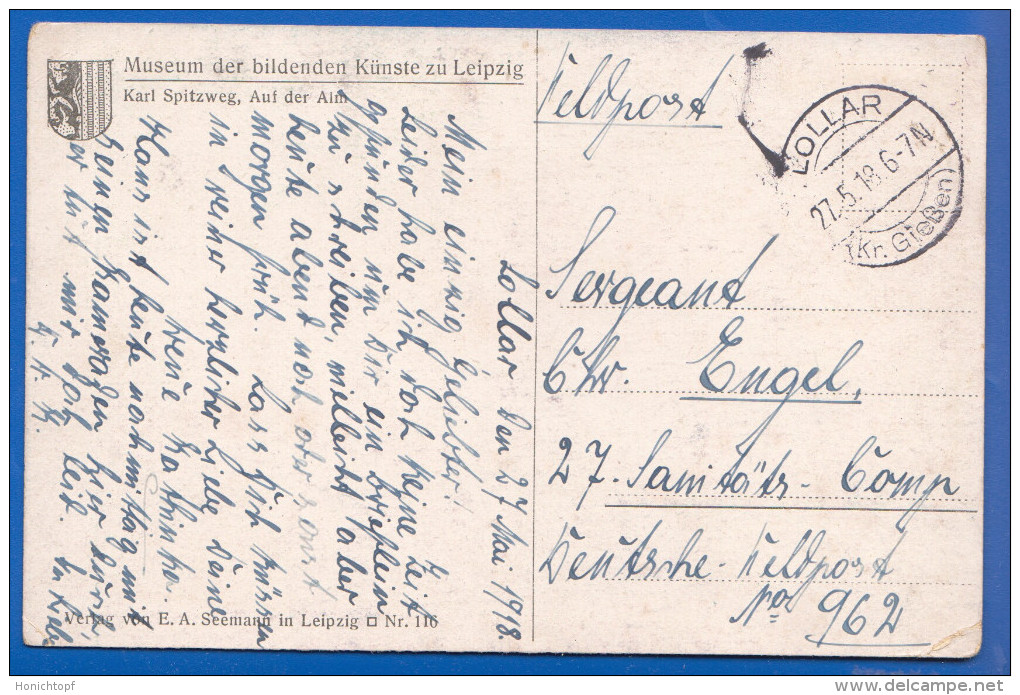 Museum der bildenden Künste zu Leipzig
Karl Spitzweg, Auf der Alm
Feldpost
LOLLAR
27.5.18 6-7N
(Kr. Gießen)
Sergeant
Chr. Engel,
27. Sanitäts-Comp
Deutsche-Feldpost
No 962
Lollar den 27 Mai 1918.
Mein einzig Geliebter!
Leider habe ich doch keine Zeit
gefunden um dir ein Brieflein
zu schreiben, vielleicht aber
heute abend noch oder sonst
morgen früh. Lass dich küssen
in reiner herzlicher Liebe deine
treue Kathinka.
Hans ist heute nachmittag mit
seinen Kameraden hier durch
er tut mir doch leid.
Verlag von E. A. Seemann in Leipzig □ Nr. 116
Honichtopf
delcampe.net